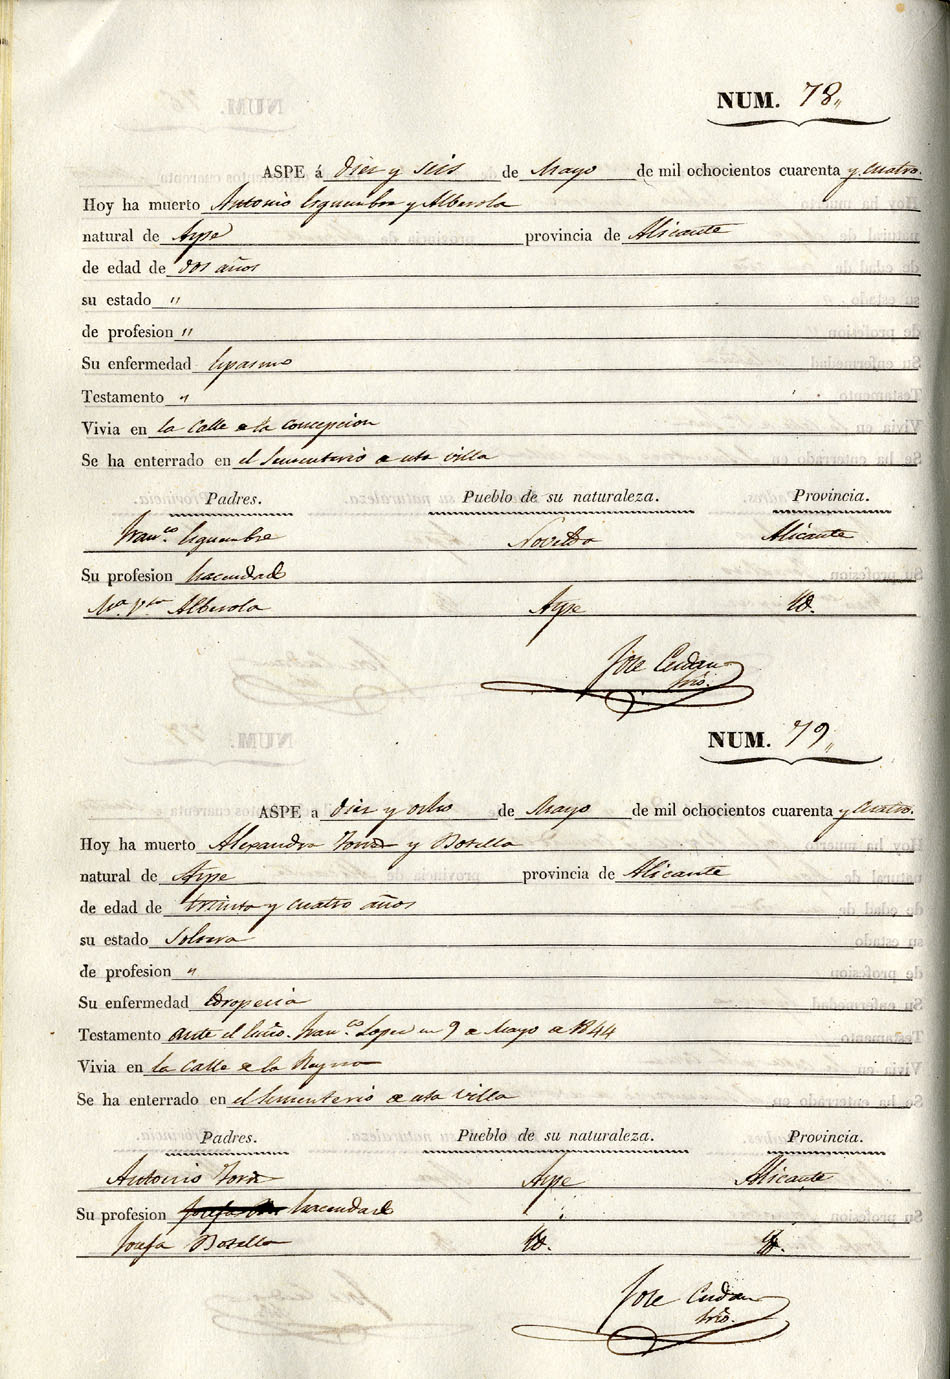 NUM. 78,,
ASPE á diez y seis de Mayo de mil ochocientos cuarenta y cuatro.
Hoy ha muerto Antonio Esquembre y Alberola
natural de Aspe provincia de Alicante
de edad de dos años
su estado "
de profesion "
Su enfermedad Espasmo
Testamento "
Vivia en la Calle de la Concepcion
Se ha enterrado en el Sementerio de esta villa
Padres. Pueblo de su naturaleza. Provincia.
Franco. Esquembre Novelda Alicante
Su profesion hacendado
Alberola Aspe Yd.
Jose
NUM. 79,,
ASPE a diez y ocho de Mayo de mil ochocientos cuarenta y cuatro.
Hoy ha muerto Alexandra y Botella
natural de Aspe provincia de Alicante
de edad de treinta y cuatro años
su estado Soltera
de profesion "
Su enfermedad
Testamento ante el Esño. Franco. Lopez en 9 de Mayo de 1844
Vivia en la Calle de la Reyna
Se ha enterrado en el Sementerio de esta villa
Padres. Pueblo de su naturaleza. Provincia.
Antonio Aspe Alicante
Su profesion hacendado
Josefa Botella Yd. Yd.
Jose